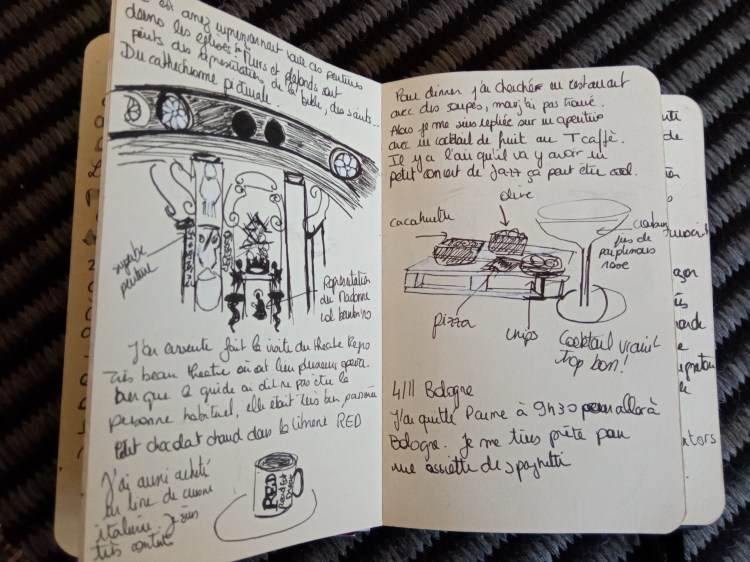 est assez impressionnant toute ces peintures
dans les églises. Murs et plafonds sont
peints des représentations de la bible, des saints...
Du cathéchisme picturale.
superbe
peinture
Représentation
du Madonna
col bambino
J'ai ensuite fait la visite du theatre Regio
Très beau theatre où ont lieu plusieurs opéra.
bien que le guide ai dit ne pas être la
personne habituel, elle était très bien passionné
Petit chocolat chaud dans la librairie RED
RED
Read Eat
Dream
J'ai aussi acheté
un livre de cuisine
italienne. Je suis
très contente
Pour dinner j'ai cherché un restaurant
avec des soupes, mais j'ai pas trouvé.
Alors je me suis repliée sur un aperitivo
avec un cocktail de fruit au T caffè.
Il y a l'air qu'il va y avoir un
petit concert de Jazz ça peut être cool.
olive
cacahuète
jus de
pamplemousse
rose
pizza
chips
Cocktail vraiment
trop bon!
4/11 Bologne
J'ai quitté Parme à 9h30 pour aller à
Bologne. Je me tiens prête pour
une assiette de spaghetti